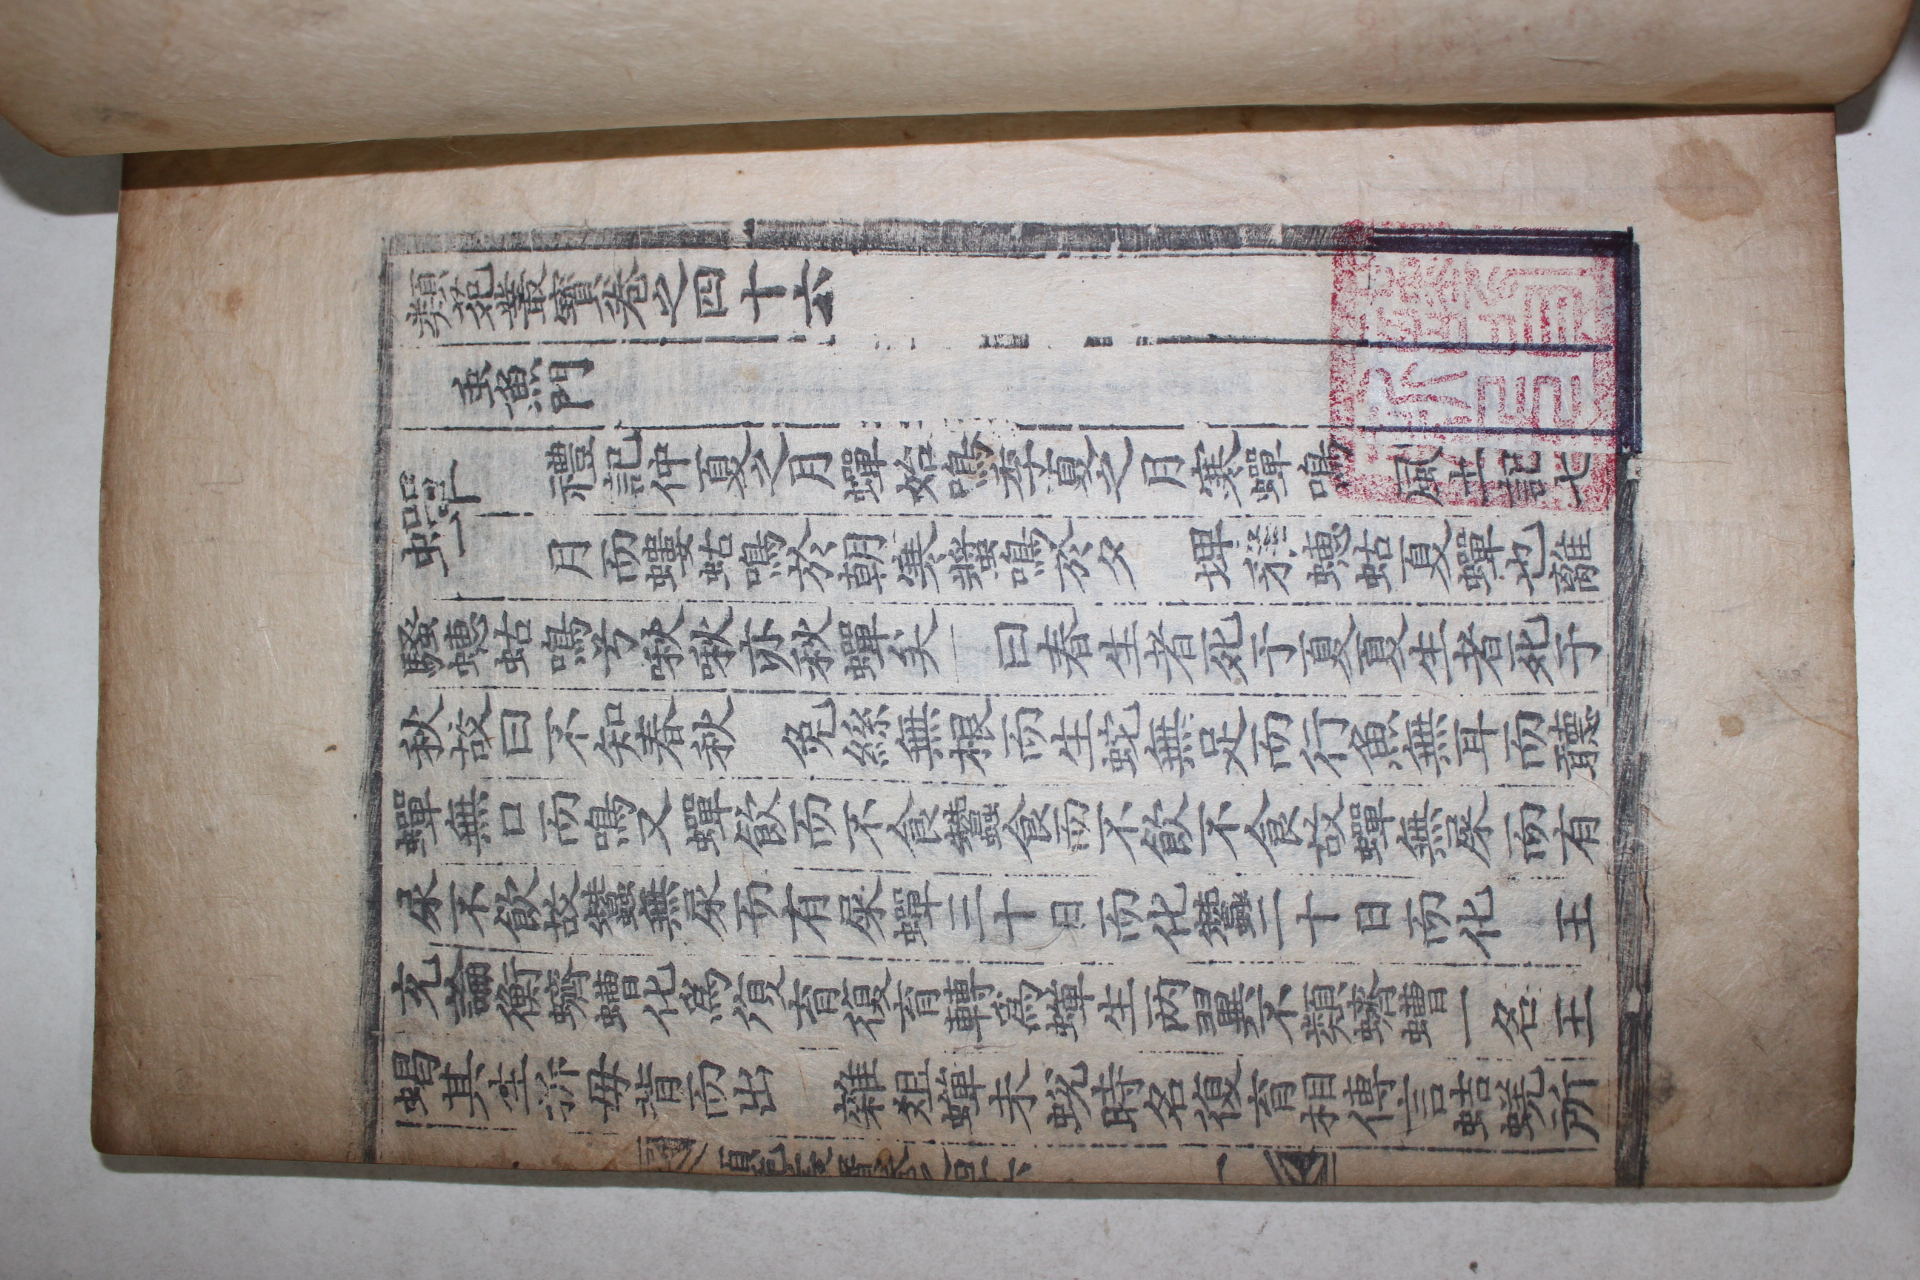 類苑叢寶卷之四十六
虫魚門
蟬
禮記仲夏之月蟬始鳴季夏之月寒蟬鳴 風土記七
月而螻蛄鳴於朝寒螿鳴於夕 埤 蟪蛄夏蟬也離
騷蟪蛄鳴兮啾啾亦秋蟬矣一曰春生者死于夏夏生者死于
秋故曰不知春秋 免絲無根而生蛇無足而行魚無耳而聽
蟬無口而鳴又蟬飲而不食蠶食而不飲不食故蟬無屎而有
尿不飲故蠶無尿而有屎蟬三十日而化蠶二十日而化 王
充論衡蠐螬化爲復育復育轉爲蟬生兩翼不類蠐螬一名王
蝎其生拆母背而出 雜俎蟬未蛻時名復育相傳言蛣蜣所
類苑叢寶卷之四十六
一